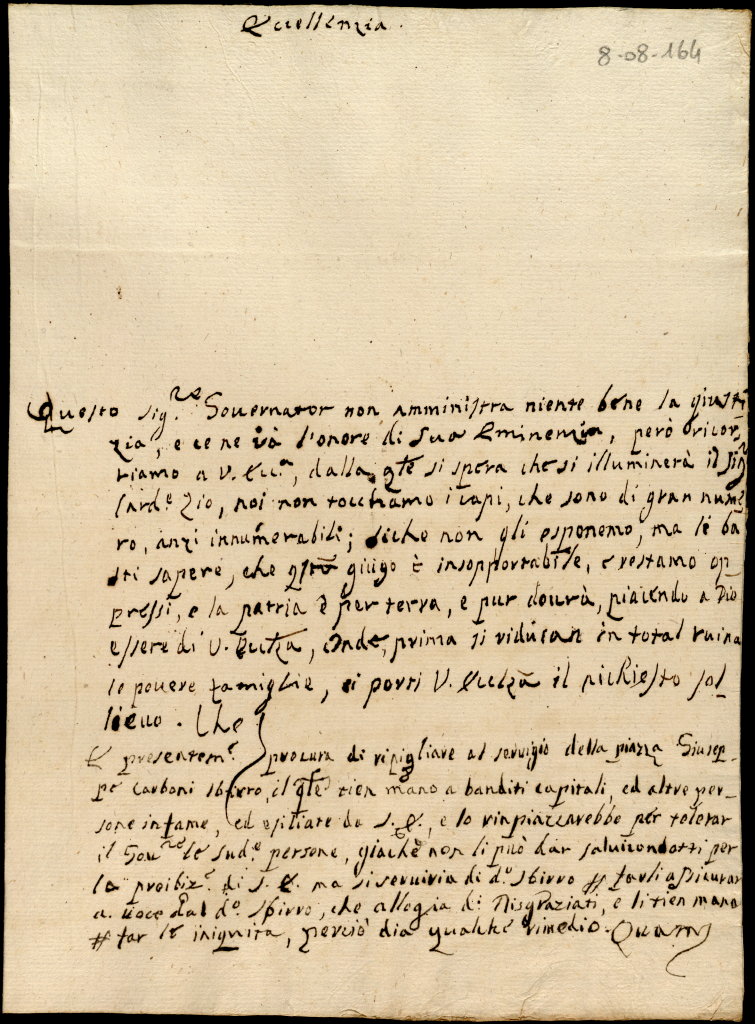 Eccellenzia.
8-08-164
Questo sig.re Governator non amministra niente bene la giusti
zia, e ce ne và l'onore di Sua Eminenzia, però ricor
riamo a V. Ecc.a, dalla qte si spera che si illuminerà il Sigr
Card.e Zio, noi non tocchiamo i capi, che sono di gran nume
ro, anzi innumerabili; siche non gli esponemo, ma le ba
sti sapere, che qsto giogo è insopportabile, e restamo op
pressi, e la patria è per terra, e pur dovrà, piacendo a Dio
essere di V. Ecclza, onde, prima si riducan in total ruina
le povere famiglie, ci porti V. Ecclza il richiesto sol
lievo. Che
E presentem.e procura di ripigliare al servigio della piazza Giusep
pe Carboni sbirro, il qle tien mano a banditi capitali, ed altre per
sone infame, ed esiliate da S. E., e lo rimpiazzarebbe per tolerar
il Gov.re le sud.e persone, giachè non li può dar salvicondotti per
la proibiz.e di S. E. ma si serviria di d.o sbirro # farli assicurar
a voce dal d.o sbirro, che alloggia di Disgraziati, e li tien mano
# far le iniquita, perciò dia qualche rimedio. Quam